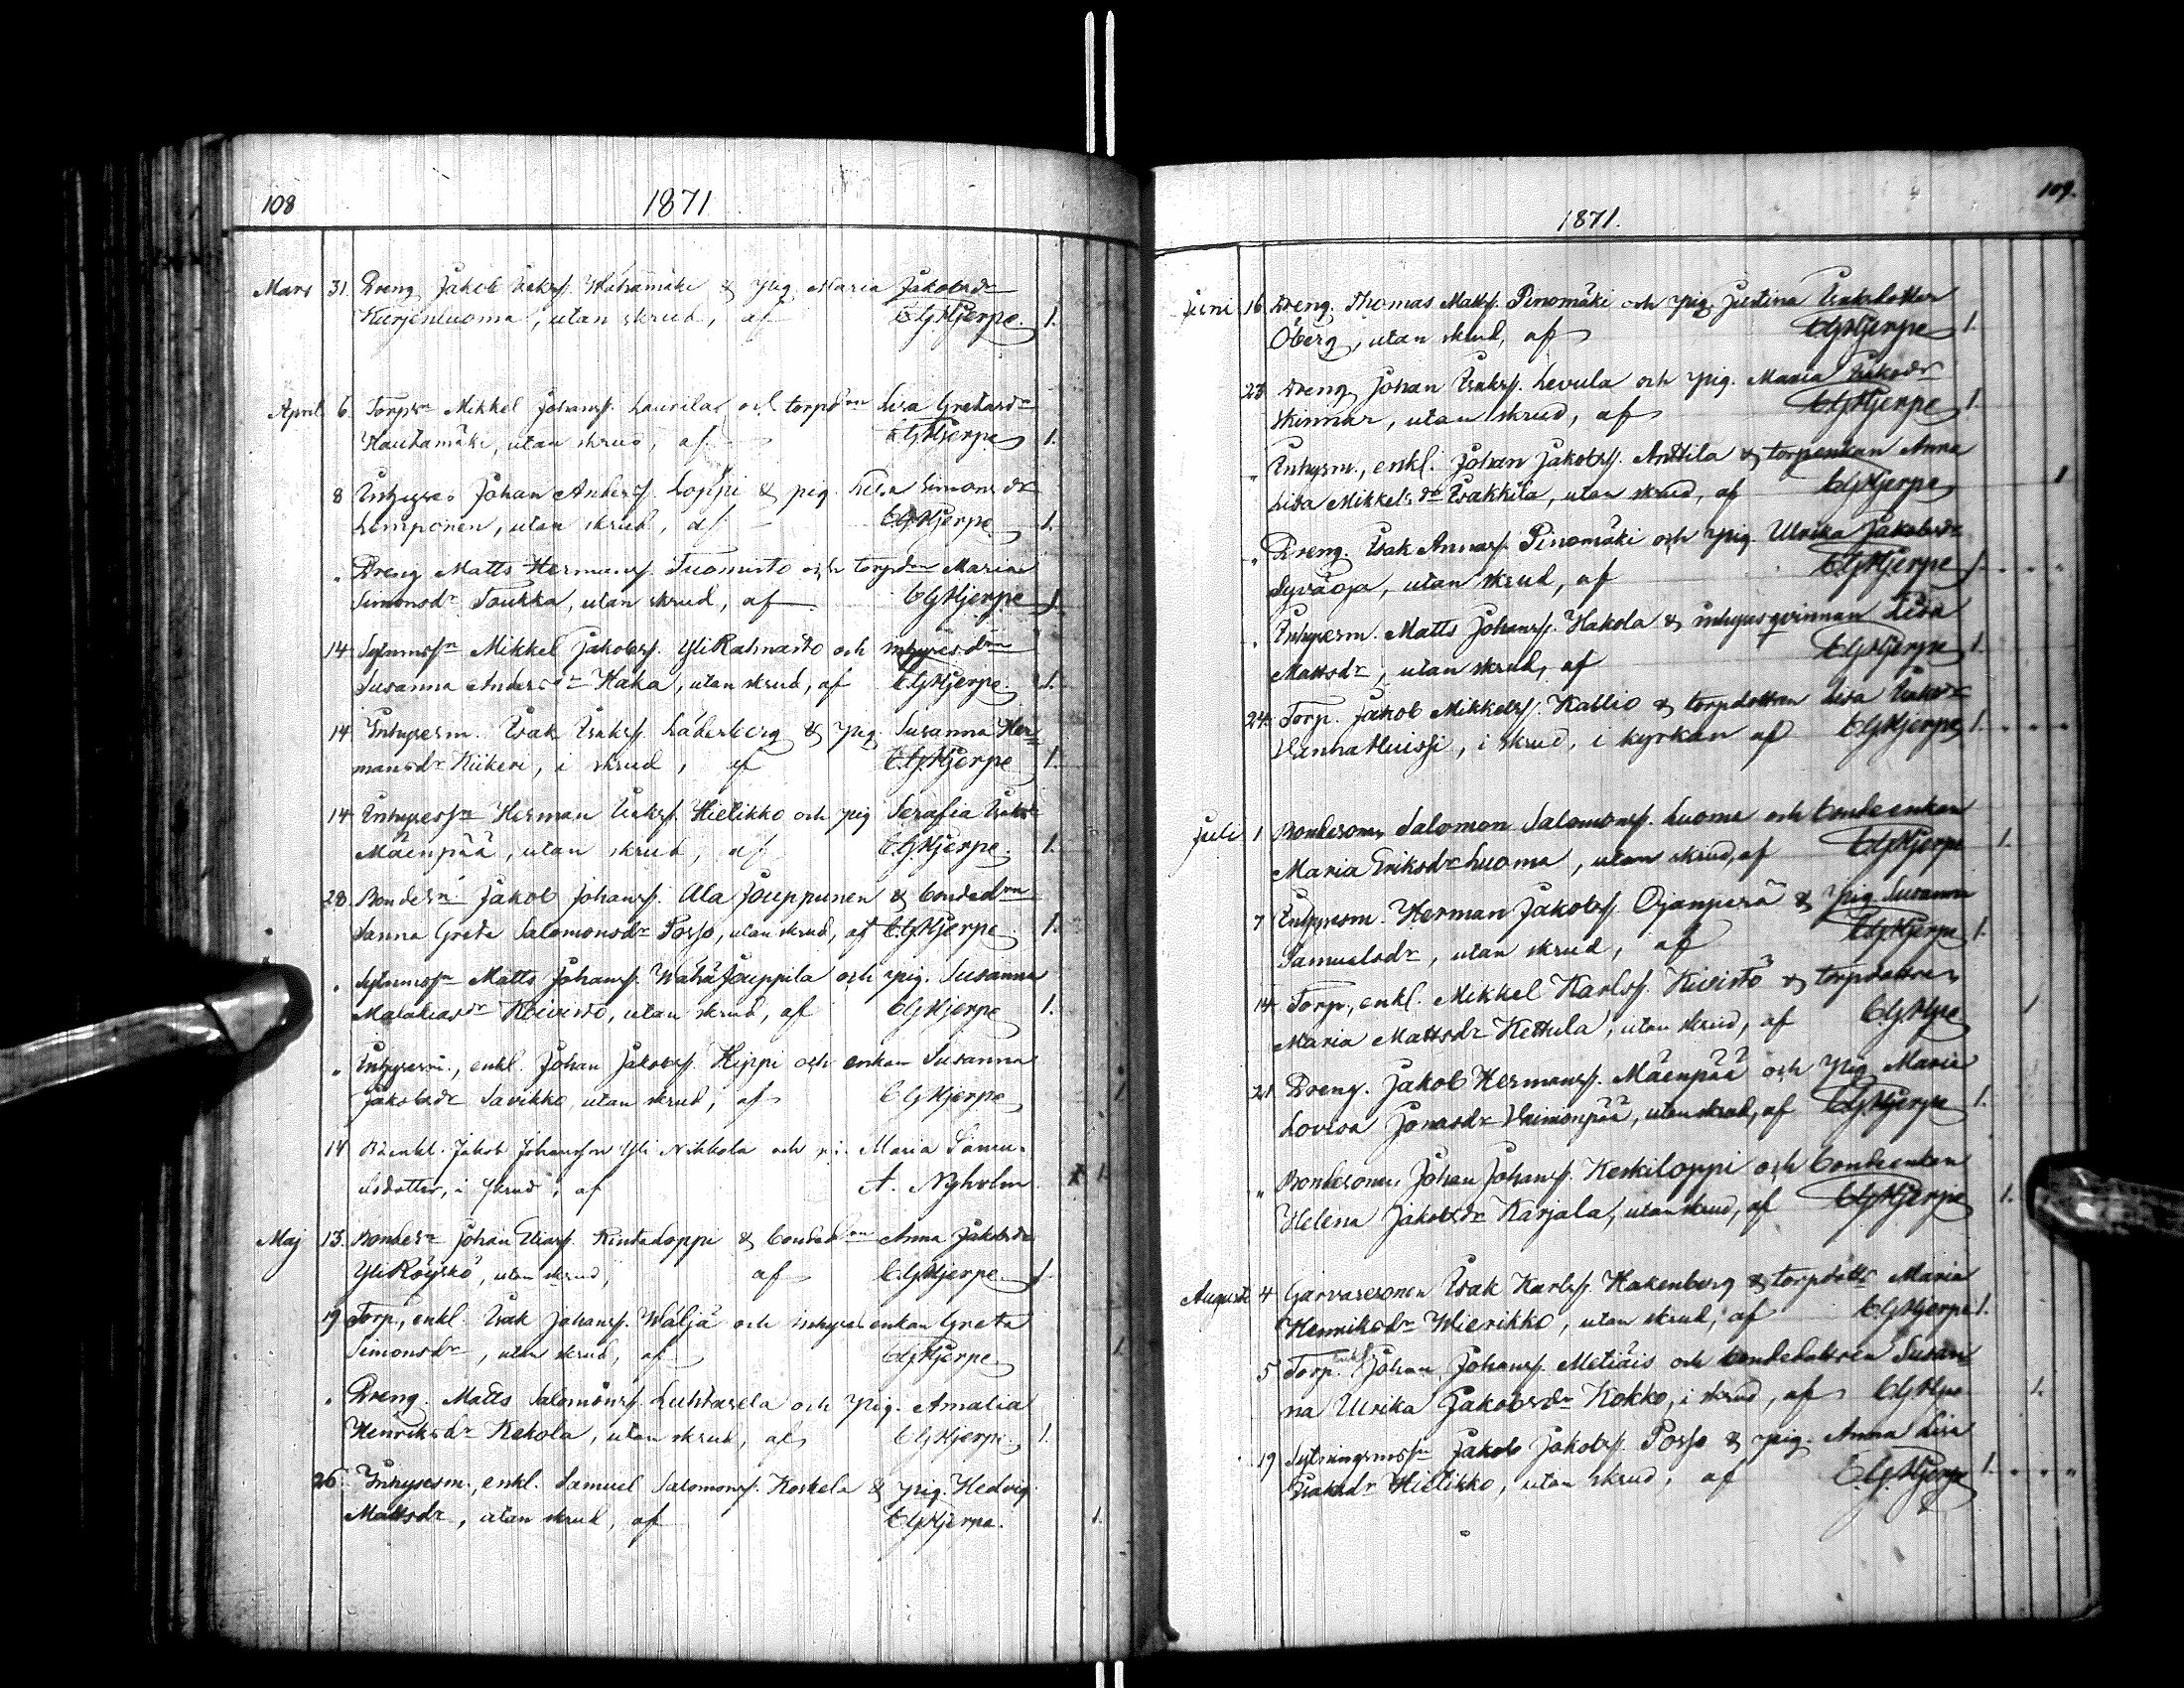 108
1871
Mars 31 Dreng Jakob Isakss. Wähämäki & pig. Maria Jakobsdr
Kurjenluoma, utan skrud, af CGHjerpe. 1.
April 6. Torpsn Mikkel Johanss. Laurila och torpdrn Lisa Gretasdr
Hautamäki, utan skrud, af CGHjerpe 1.
8 Inhyses Johan Anderss. Loppi & pig. Lisa Simonsdr
Limponen, utan skrud, af CGHjerpe 1.
" Dreng Matts Hermanss. Tuomisto och torpdrn Maria
Simonsdr Toukka, utan skrud, af CGHjerpe 1.
14 Sytnmssn Mikkel Jakobss. YliRahnasto och inhysesdrn
Susanna Andersdr Haka, utan skrud, af CGHjerpe. 1.
14 Inhysesm. Isak Isakss. Läderberg & pig. Susanna Her=
mansdr Kiikeri, i skrud, af C.G.Hjerpe 1.
14 Inhysessn Herman Isakss. Hietikko och pig Serafia Isaksdr
Mäenpää, utan skrud, af C.G.Hjerpe. 1.
28. Bondesn Jakob Johanss. Ala Jouppinen & bondedrn
Sanna Greta Salomonsdr Posso, utan skrud, af C.G.Hjerpe 1.
" Sytnmssn Matts Johanss. WähäJouppila och pig. Susanna
Malakiasdr Koivisto, utan skrud, af CGHjerpe 1.
" Inhysesm., enkl. Johan Jakobss. Hippi och enkan Susanna
Jakobsdr Savikko, utan skrud, af CGHjerpe 1
14 Bd enkl. Jakob Johansson Yli Nikkola och pi. Maria Samu-
elsdotter, i skrud, af A. Nyholm 1.
Maj 13. Bondesn Johan Eliass. Rintaloppi & bondedrn Anna Jakobsdr
YliRöyskö, utan skrud, af C.GHjerpe. 1.
19 Torp., enkl. Isak Johanss. Wäljä och inhyses enkan Greta
Simonsdr, utan skrud, af CGHjerpe 1.
" Dreng. Matts Salomonss. Luhtasela och pig. Amalia
Henriksdr Kekola, utan skrud, af CGHjerpe. 1.
26. Inhysesm., enkl. Samuel Salomonss. Koskela & pig. Hedvig
Mattsdr, utan skrud, af CGHjerpe. 1.
109.
1871.
Juni 16. Dreng. Thomas Matss. Pinomäki och pig. Justina Isaksdotter
Öberg, utan skrud, af CGHjerpe 1.
23. Dreng Johan Isakss. Levula och pig. Maria Isaksdr
Skinnar, utan skrud, af CGHjerpe 1.
" Inhysm., enkl. Johan Jakobss. Anttila & torpenkan Anna
Lisa Mikkelsdr Isakkila, utan skrud, af CGHjerpe 1
" Dreng. Isak Annass. Pinomäki och pig. Ulrika Jakobsdr
Syväoja, utan skrud, af CGHjerpe 1.
" Inhysesm. Matts Johanss. Hakola & inhysesqvinnan Lisa
Mattsdr, utan skrud, af CGHjerpe 1.
24. Torp. Jakob Mikkelss. Kallio & torpdottren Lisa Isaksdr
WanhaKuissi, i skrud, i kyrkan af CGHjerpe 1.
Juli 1 Bondesonen Salomon Salomonss. Luoma och bondeenkan
Maria Eriksdr Luoma, utan skrud, af CGHjerpe 1.
7 Inhysesm. Herman Jakobss. Ojanperä & pig. Susanna
Samuelsdr, utan skrud, af CGHjerpe 1.
14 Torp., enkl. Mikkel Karlss. Kivistö & torpdottren
Maria Mattsdr Kettula, utan skrud, af C.G.Hjpe 1
21 Dreng. Jakob Hermanss. Mäenpää och pig Maria
Lovisa Jonasdr Wainionpää, utan skrud, af CGHjerpe 1.
" Bondesonen Johan Johanss. Keskiloppi och bondeenkan
Helena Jakobsdr Karjala, utan skrud, af CGHjerpe 1.
Augusti 4 Garvaresonen Isak Karlss. Hakenberg & torpdottr Maria
Henriksdr Wierikko, utan skrud, af CGHjerpe 1.
5 Torp. enkl. Johan Johanss. Metiäis och bondedottren Susan=
na Ulrika Jakobsdr Kokko, i skrud, af CGHjpe 1.
19 Sytningsmssn Jakob Jakobss. Posso & pig. Anna Lisa
Isaksdr Hietikko, utan skrud, af C.G.Hjerpe 1.